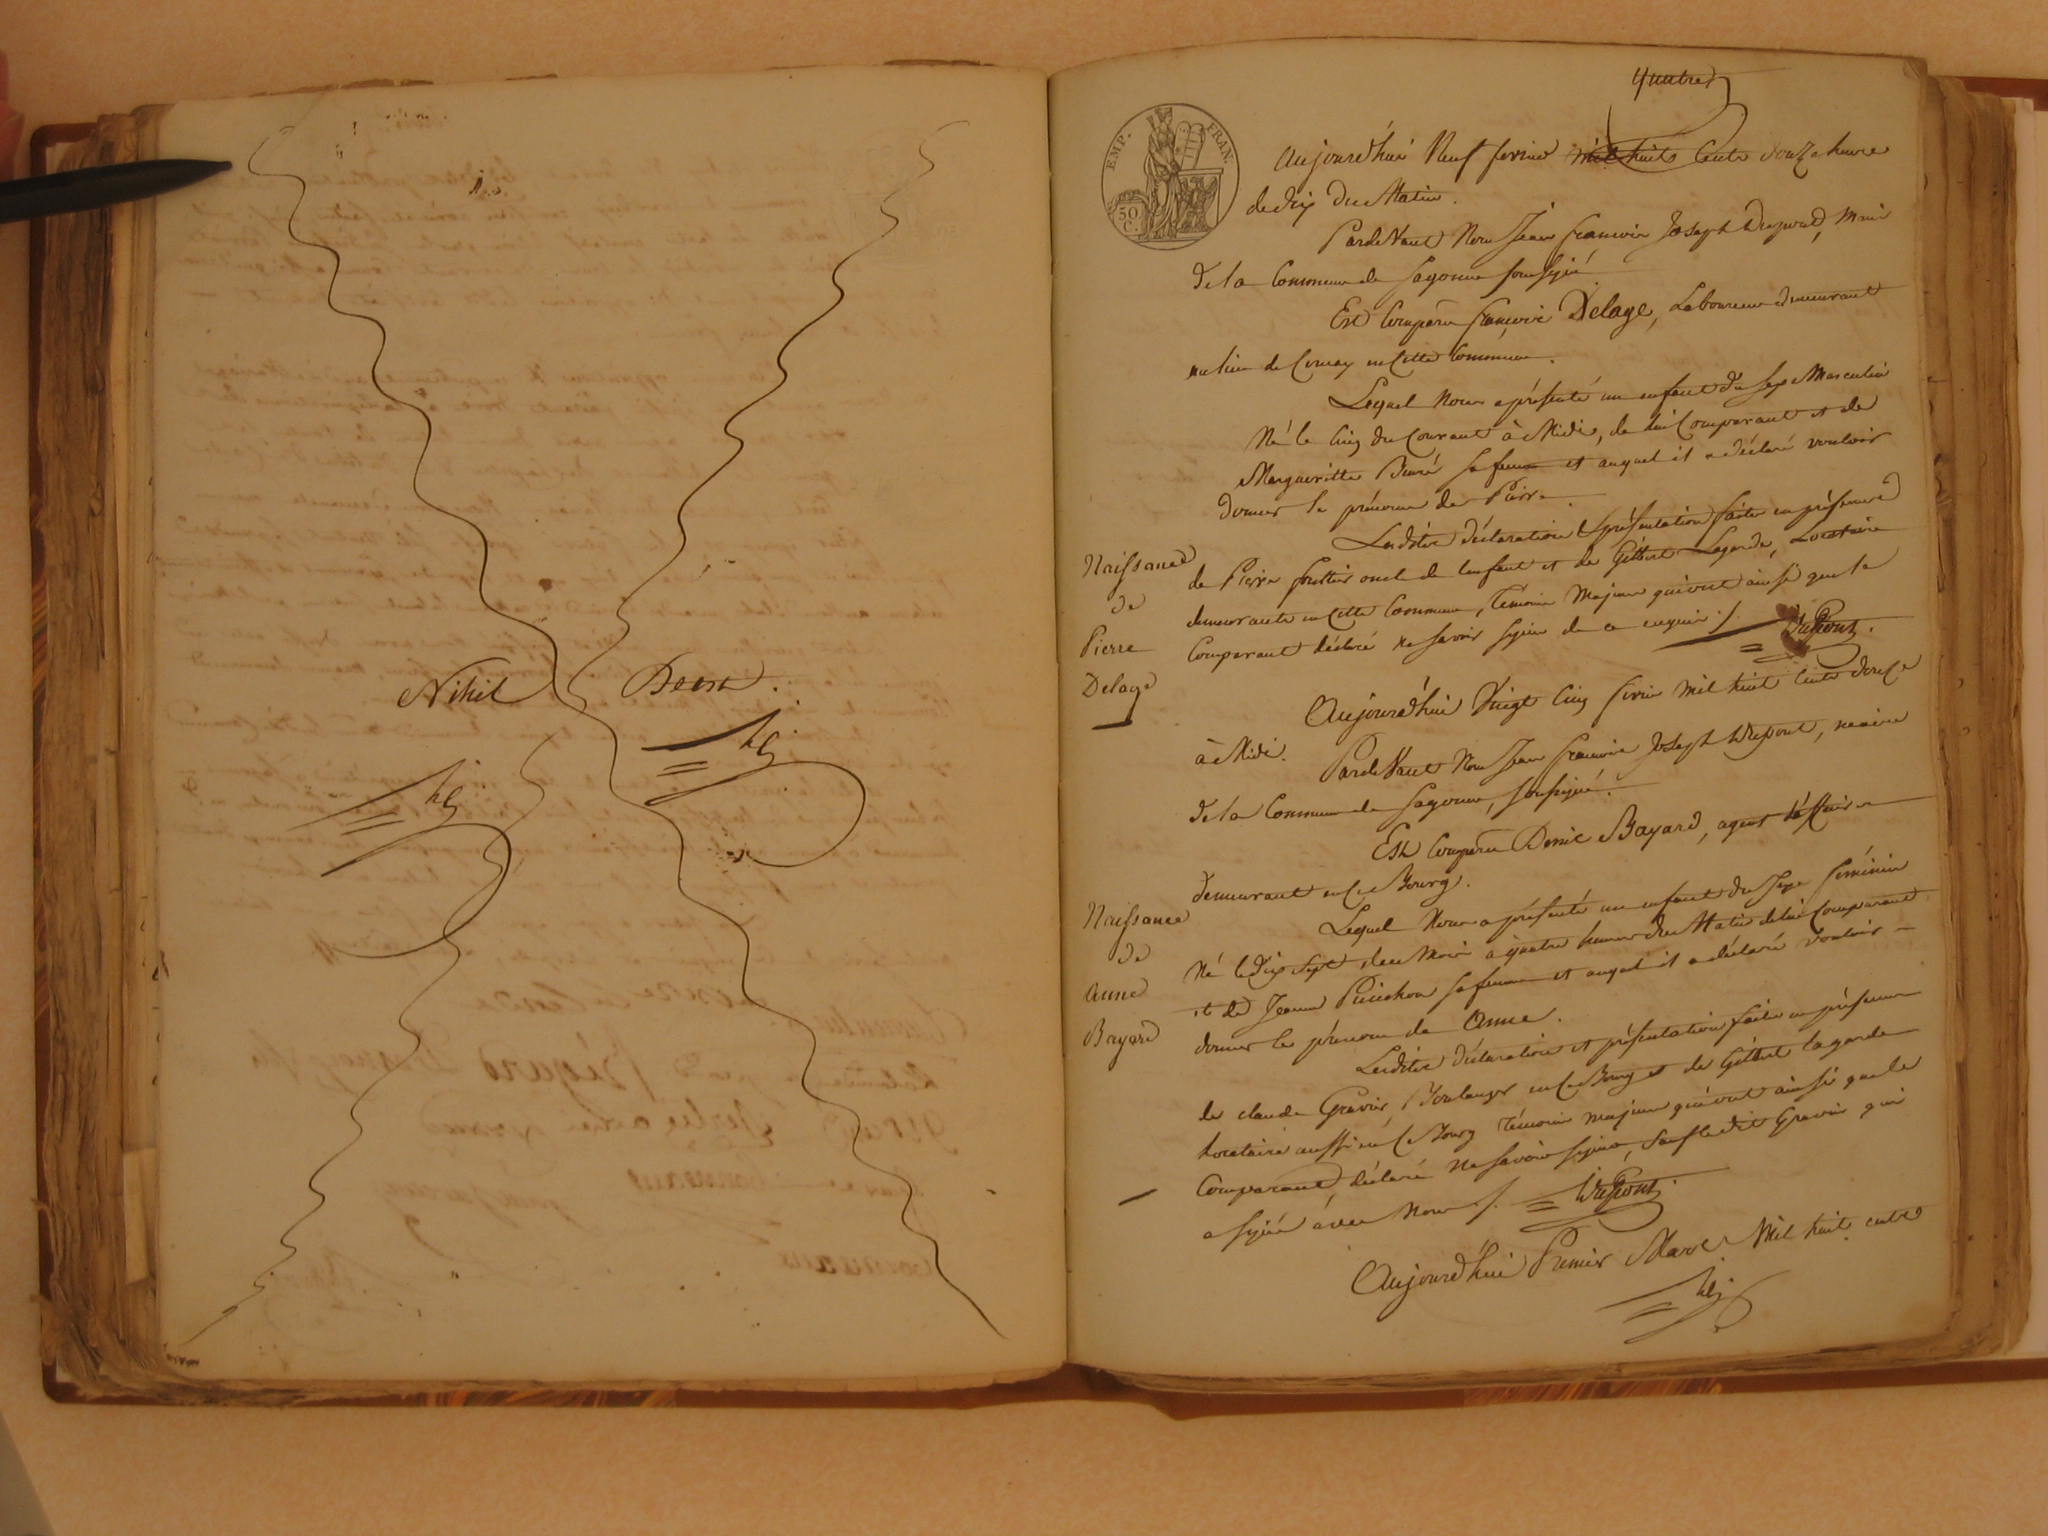 Nihil Deest.
quatre
EMP. FRAN.
50 C.
Aujourd'hui Neuf fevrier mil huit Cents douze heure
de dix du Matin.
Pardevant Nous Jean francois Joseph Dupont, Maire
De la Commune de Sagonne soussigné.
Est Comparu françois Delage, Laboureur demeurant
au lieu de en Cette Commune.
Lequel Nous a présenté un enfant du sexe Masculin
Né le Cinq du Courant à Midi, de lui Comparant et de
Margueritte sa femme et auquel il a déclaré vouloir
donner le prénom de Pierre.
Lesdites déclaration & présentation faites en présence
de Pierre oncl de lenfant et de Gilbert Lagarde, Locataire
demeurants en Cette Commune, Témoins Majeurs qui ont ainsi que le
Comparant déclaré ne savoir signer de ce enquis ./.
Dupont.
Naissance
de
Pierre
Delage
Aujourd'hui Vingt Cinq fevrier Mil huit Cents douze
à Midi.
Pardevant Nous Jean francois Joseph Dupont, maire
De la Commune de Sagonne, soussigné.
Est Comparu Denis Bayard, agent d'affaires
demeurant en ce Bourg.
Lequel Nous a présenté un enfant du Sexe féminin
Né le dix Sept du Mois à quatre heures du Matin de lui Comparant
et de Jeanne sa femme et auquel il a déclaré vouloir
donner le prénom de Anne.
Lesdites déclaration et présentation faites en présence
de claude Gravier, Boulanger en ce Bourg et de Gilbert lagarde
Locataire aussi en ce Bourg Témoins majeurs qui ont ainsi que le
Comparant, déclaré Ne savoir signer, sauf ledit Gravier qui
a signé avec Nous ./.
Dupont.
Naissance
de
Anne
Bayard
Aujourd'hui Premier Mars Mil huit cents